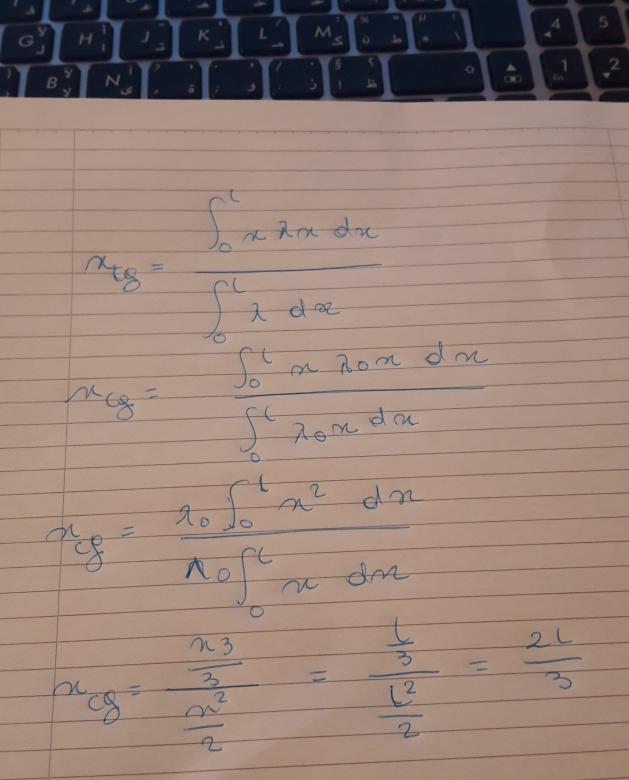 G H J K L M 4 5
B N 1 2
x_cg = ∫₀ᴸ x λx dx / ∫₀ᴸ λ dx
x_cg = ∫₀ᴸ x λ₀x dx / ∫₀ᴸ λ₀x dx
x_cg = λ₀ ∫₀ᴸ x² dx / λ₀ ∫₀ᴸ x dx
x_cg = (x3/3) / (x²/2) = (L/3) / (L²/2) = 2L/3